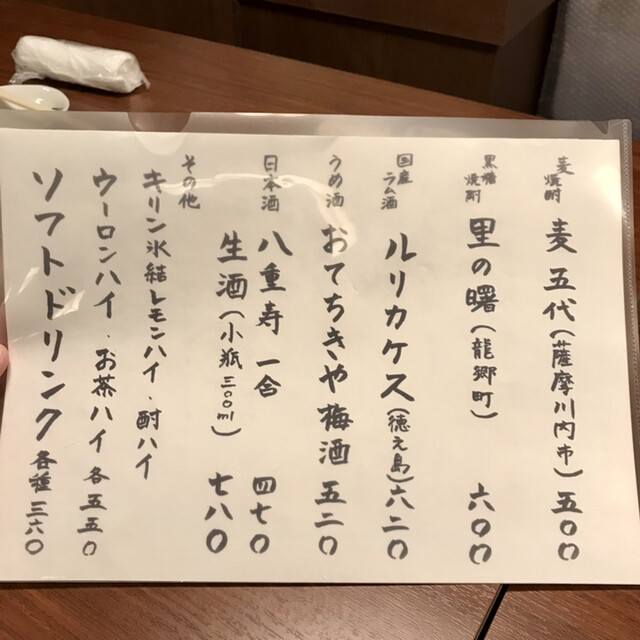 麦焼酎 麦五代(薩摩川内市) 五〇〇
黒糖焼酎 里の曙(龍郷町) 六〇〇
国産ラム酒 ルリカケス(徳之島) 六二〇
うめ酒 おてちきや梅酒 五二〇
日本酒 八重寿 一合 四七〇
生酒(小瓶三〇〇ml) 七八〇
その他
キリン氷結レモンハイ、酎ハイ
ウーロンハイ、お茶ハイ 各五五〇
ソフトドリンク 各種 三六〇